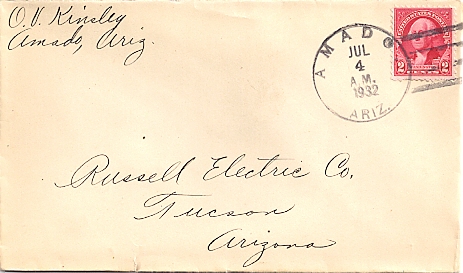 O. V. Kinsley
Amado, Ariz.
AMADO
JUL
4
A.M.
1932
ARIZ.
2 2
Russell Electric Co.
Tucson
Arizona